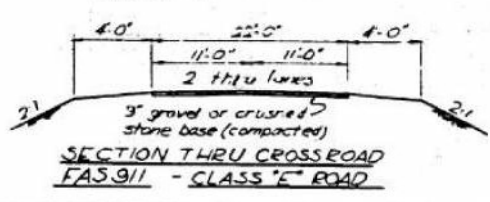 4'-0" 22'-0" 4'-0"
11'-0" 11'-0"
2 thru lanes
2:1 2:1
9" gravel or crushed
stone base (compacted)
SECTION THRU CROSSROAD
FAS 911 - CLASS "E" ROAD